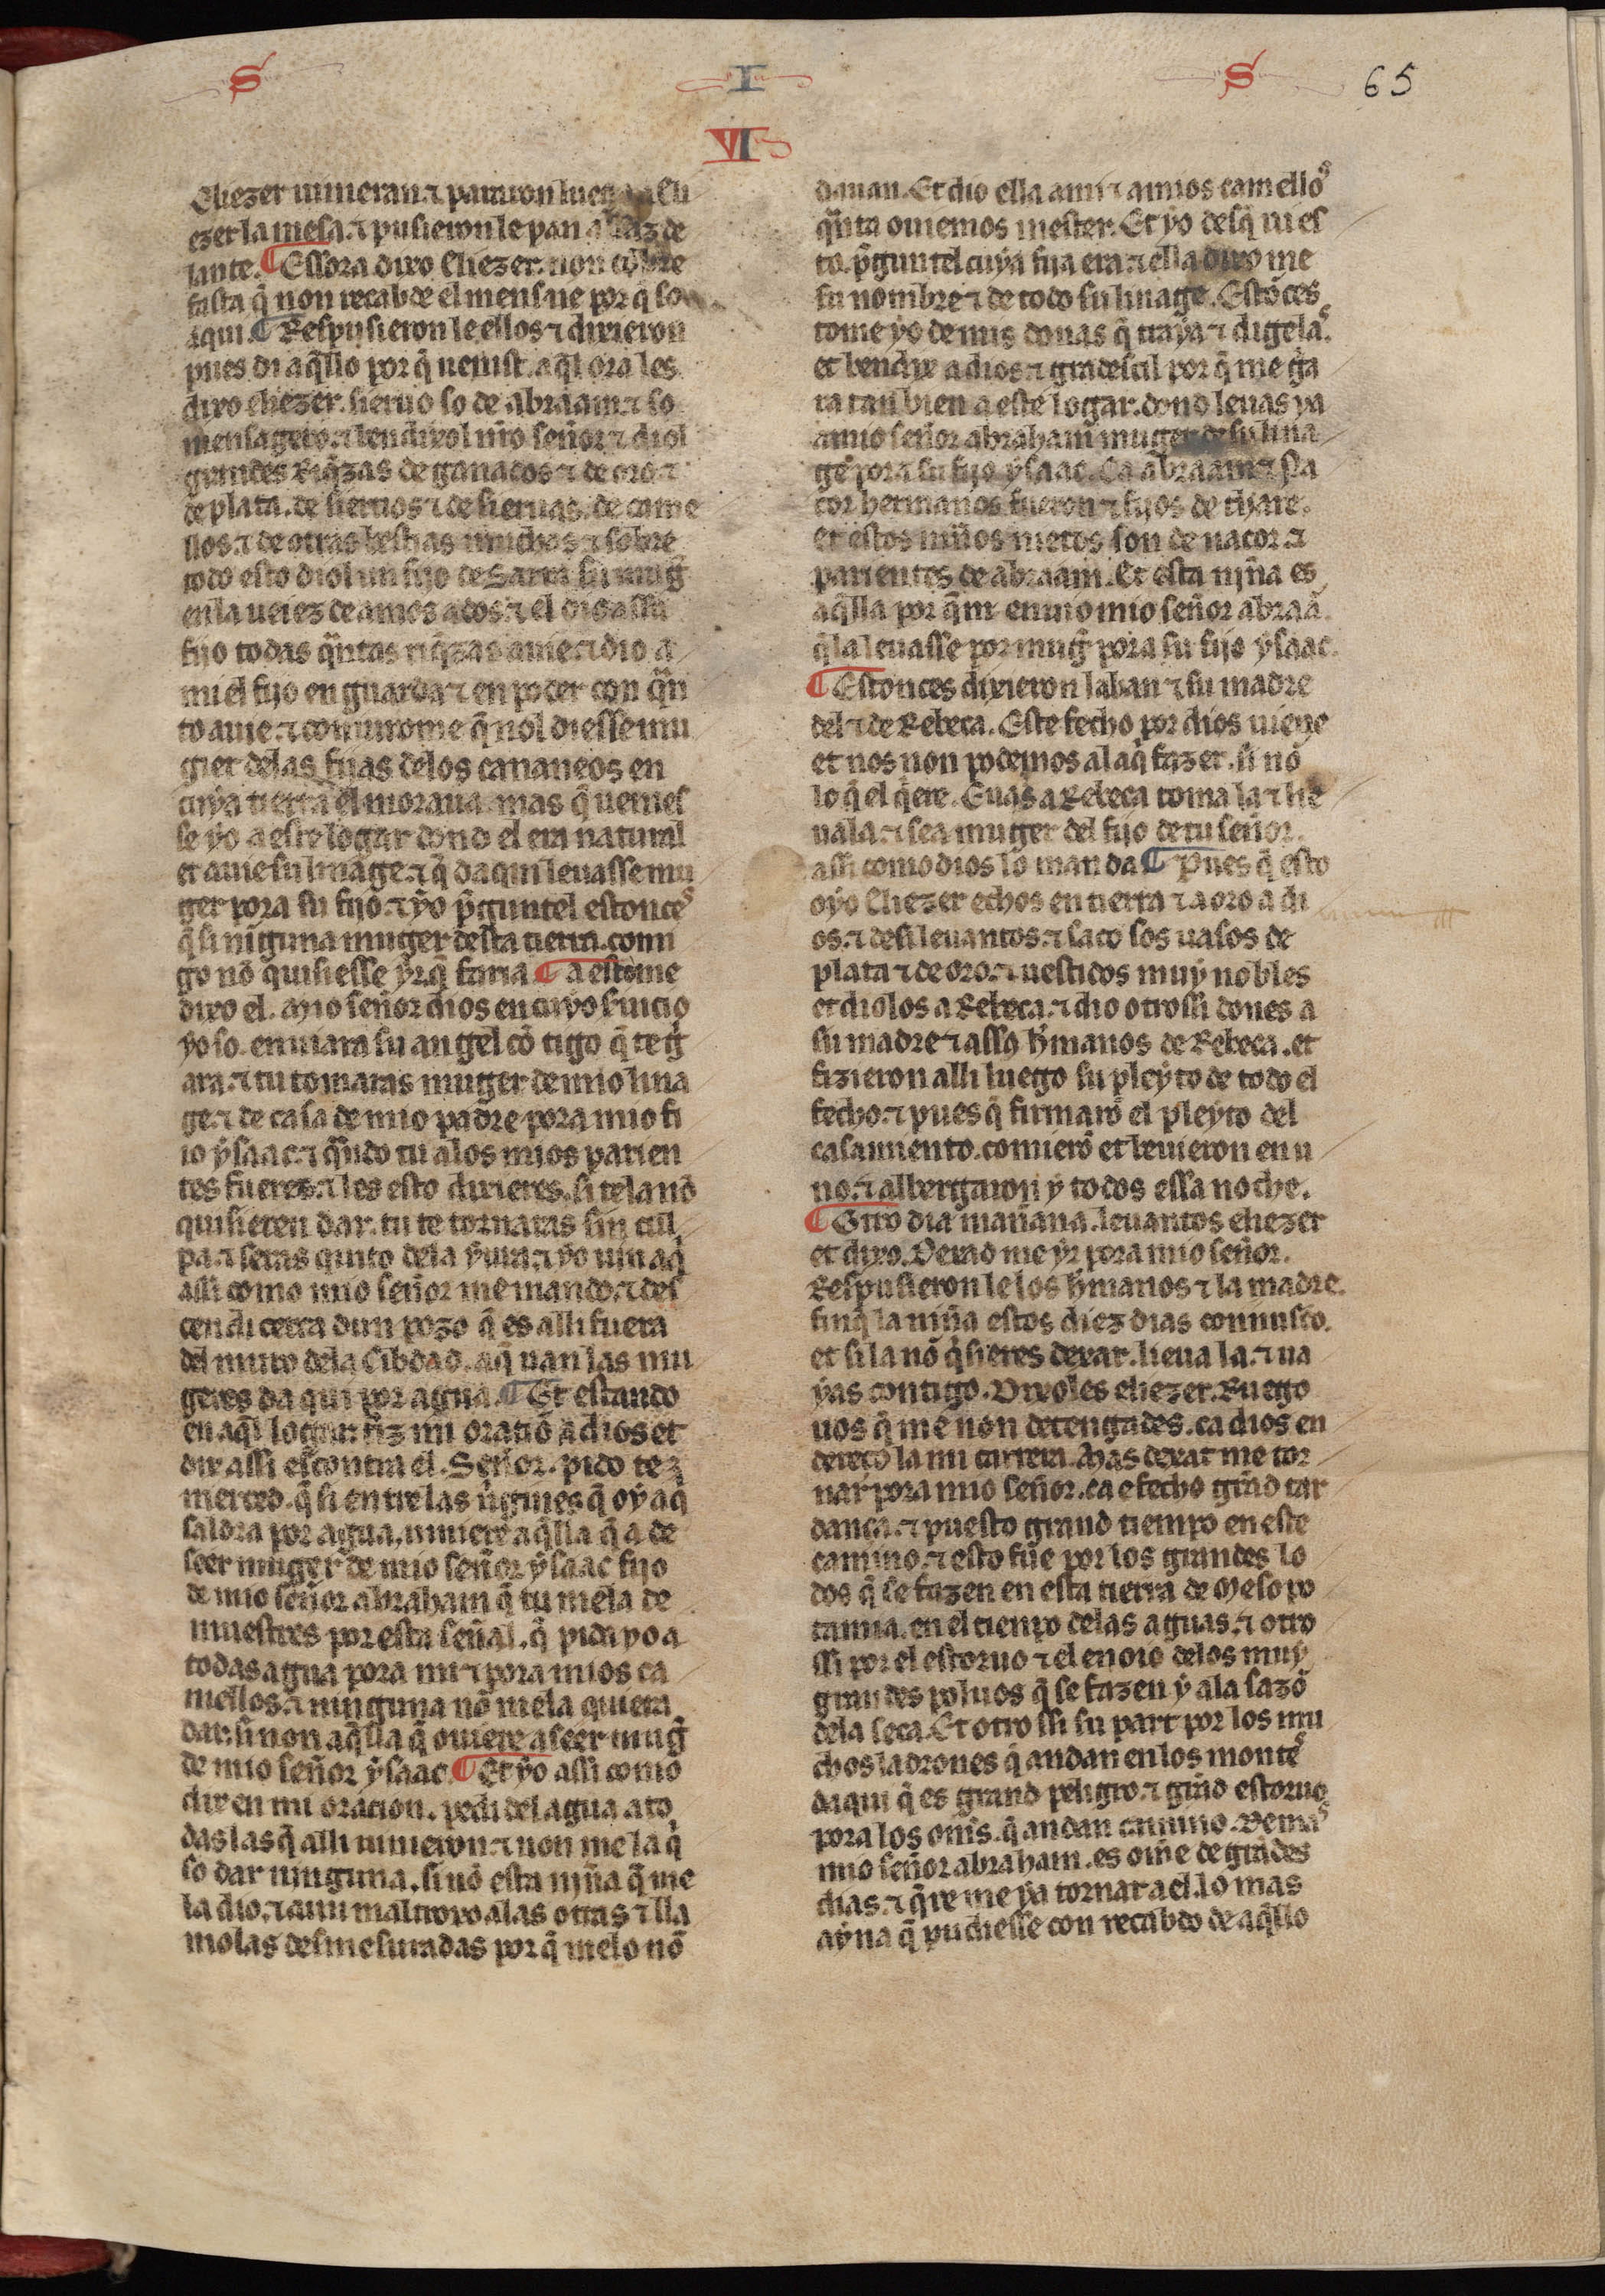 S I S 65
VI
Eliezer uinieran ⁊ pararon luego a Eli
ezer la mesa. ⁊ pusieron le pan de
lante. ¶ Essora dixo Eliezer. non cõbre
fasta q̃ non recabde el mensaie por q̃ so
aqui. ¶ Respusieron le ellos ⁊ dixieron
pues di aq̃llo por q̃ uenist. aq̃l ora les
dixo eliezer. sieruo so de abraam. ⁊ so
mensagero. ⁊ bendixol nr̃o señor ⁊ diol
grandes Riq̃zas de ganados ⁊ de oro ⁊
de plata. de sieruos ⁊ de sieruas. de came
llos. ⁊ de otras bestias muchas ⁊ sobre
todo esto diol un fijo de Sarra su mug̃
en la ueiez de amos ados. ⁊ el dio a ssu
fijo todas q̃ntas riq̃zas auie. ⁊ dio a
mi el fijo en guarda ⁊ en poder con q̃n
to auie. ⁊ coniurome q̃ nol diesse mu
gier delas fijas delos cananeos en
cuya tierra el moraua. mas q̃ uenies
se yo a este logar dond el era natural
et auie su linage. ⁊ q̃ daqui leuasse mu
ger pora su fijo. ⁊ yo p̃guntel estonces
q̃ si ninguna muger desta tierra. comi
go nõ quisiesse yr q̃ faria. ¶ a esto me
dixo el. Mio señor dios en cuyo s̃uicio
yo so. enuiara su angel cõ tigo q̃ te g̃
ara. ⁊ tu tomaras muger de mio lina
ge. ⁊ de casa de mio padre pora mio fi
io ysaac. ⁊ q̃ndo tu alos mios parien
tes fueres. ⁊ les esto dixieres. si tela nõ
quisieren dar. tu te tornaras sin cul
pa. ⁊ seras quito dela yura. ⁊ yo uin aq̃
assi como mio señor me mando. ⁊ des
cendi cerca dun pozo q̃ es alli fuera
del muro dela Cibdad. aq̃ uan las mu
geres da qui por agua. ¶ Et estando
en aq̃l logar. fiz mi oratiõ a dios et
dix assi escontra el. Señor. pido te
merced. q̃ si entre las uĩgines q̃ oy aq̃
saldra por agua. uiniere aq̃lla q̃ a de
seer muger de mio señor ysaac fijo
de mio señor abraham q̃ tu mela de
muestres por esta señal. q̃ pida yo a
todas agua pora mi ⁊ pora mios ca
mellos. ⁊ ninguna nõ mela quiera
dar. si non aq̃lla q̃ ouiere a seer mug̃
de mio señor ysaac. ¶ Et yo assi como
dix en mi oracion. pedi del agua a to
das las q̃ alli uinieron. ⁊ non me la q̃
so dar ninguna. si nõ esta niña q̃ me
la dio. ⁊ aun maltroxo alas otras ⁊ lla
molas desmesuradas por q̃ melo nõ
dauan. Et dio ella a mi ⁊ a mios camellos
q̃nta ouiemos mester. Et yo desq̃ ui es
to. p̃guntel cuya fija era. ⁊ ella dixo me
su nombre ⁊ de todo su linage. Estõces
tome yo de mis donas q̃ traya ⁊ digelas.
et bendix a dios. ⁊ gradescil por q̃ me g̃a
ra tan bien a este logar. dond leuas ya
a mio señor abraham muger de su lina
ge pora su fijo ysaac. Ca abraam ⁊ Na
cor hermanos fueron ⁊ fijos de thare.
et estos niños nietos son de nacor. ⁊
parientes de abraam. Et esta niña es
aq̃lla por q̃ m enuio mio señor abraã
q̃ la leuasse por mug̃ pora su fijo ysaac.
¶ Estonces dixieron laban ⁊ su madre
del ⁊ de Rebeca. Este fecho por dios uiene
et nos non podemos al aq̃ fazer. si nõ
lo q̃ el q̃ere. Euas a Rebeca toma la ⁊ lie
uala. ⁊ sea muger del fijo de tu señor.
assi como dios lo manda ¶ Pues q̃ esto
oyo Eliezer echos en tierra ⁊ a oro a di
os. ⁊ desi leuantos. ⁊ saco sos uasos de
plata ⁊ de oro. ⁊ uestidos muy nobles
et diolos a Rebeca. ⁊ dio otrossi dones a
su madre ⁊ a sso h̃manos de Rebeca. et
fizieron alli luego su pleyto de todo el
fecho. ⁊ pues q̃ firmarõ el pleyto del
casamiento. comierõ et beuieron en u
no. ⁊ albergaron y todos essa noche.
¶ Otro dia mañana. leuantos eliezer
et dixo. Dexad me yr pora mio señor.
Respusieron le los h̃manos ⁊ la madre.
finq̃ la niña estos diez dias connusco.
et si la nõ q̃sieres dexar. lieua la. ⁊ ua
yas contigo. Dixoles eliezer. Ruego
uos q̃ me non detengades. ca dios en
dereço la mi carrera. Mas dexat me tor
nar pora mio señor. ca e fecho grãd tar
dança. ⁊ puesto grand tiempo en este
camino. ⁊ esto fue por los grandes lo
dos q̃ se fazen en esta tierra de Mesopo
tamia. en el tiempo delas aguas. ⁊ otro
ssi por el estoruo ⁊ el enoio delos muy
grandes poluos q̃ se fazen y ala sazõ
dela seca. Et otro ssi su part por los mu
chos ladrones q̃ andan en los montes
daqui q̃ es grand peligro. ⁊ grãd estoruo
pora los om̃s. q̃ andan camino. Demas
mio señor abraham. es om̃e de grãdes
dias. ⁊ q̃rre me ya tornar a el. lo mas
ayna q̃ pudiesse con recabdo de aq̃llo